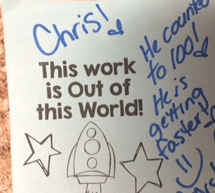 Chris!
This work
is Out of
this World!
He counted
to 100!
He is
getting
faster!